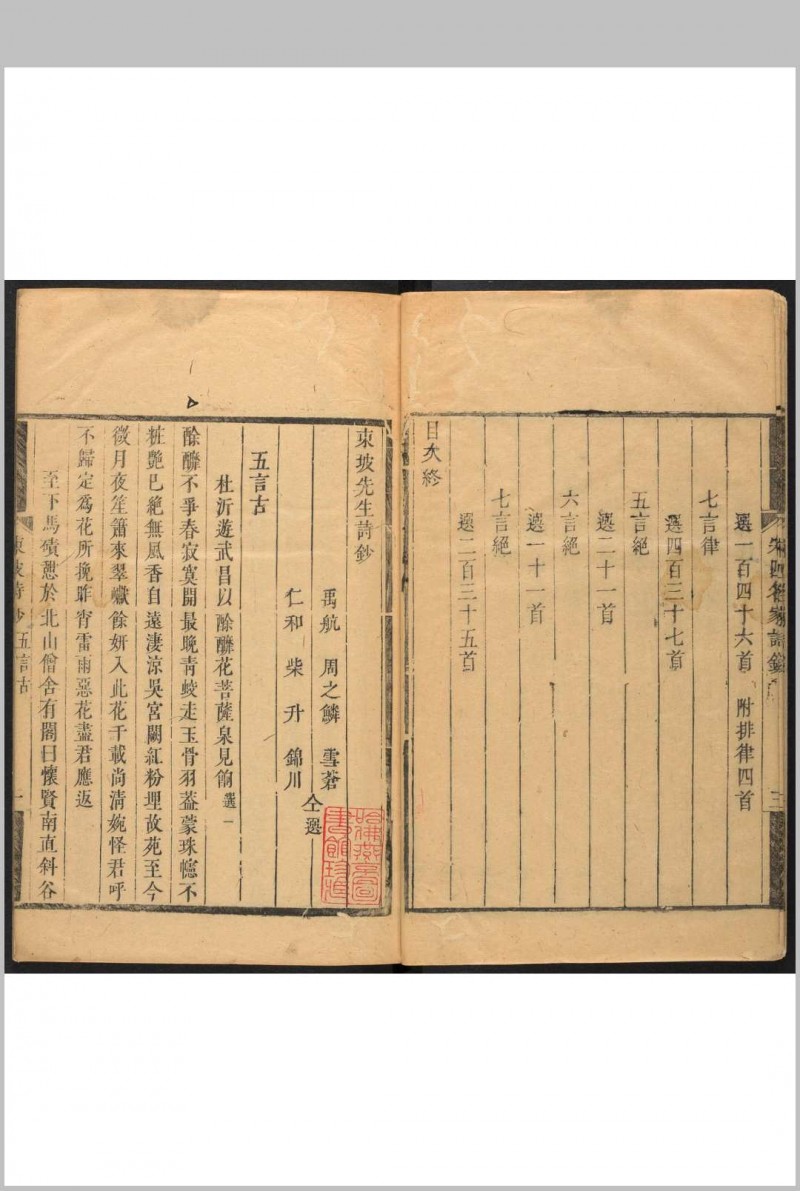 宋四名家詩鈔
三
選一百四十六首 附排律四首
七言律
選四百三十七首
五言絕
選二十一首
六言絕
選一十一首
七言絕
選二百三十五首
目次終
東坡先生詩鈔
禹航 周之鱗 雪蒼
仁和 柴升 錦川
仝選
哈佛燕京圖書館珍藏
五言古
杜沂遊武昌以酴醿花菩薩泉見餉 選一
酴醿不爭春寂寞開最晚青蛟走玉骨羽葢蒙珠幰不
粧艷已絕無風香自遠淒涼吳宮闕紅粉埋故苑至今
微月夜笙簫來翠巘餘妍入此花千載尚清婉怪君呼
不歸定為花所挽昨宵雷雨惡花盡君應返
至下馬磧憩於北山僧舍有閣曰懷賢南直斜谷
東坡詩鈔五言古
一